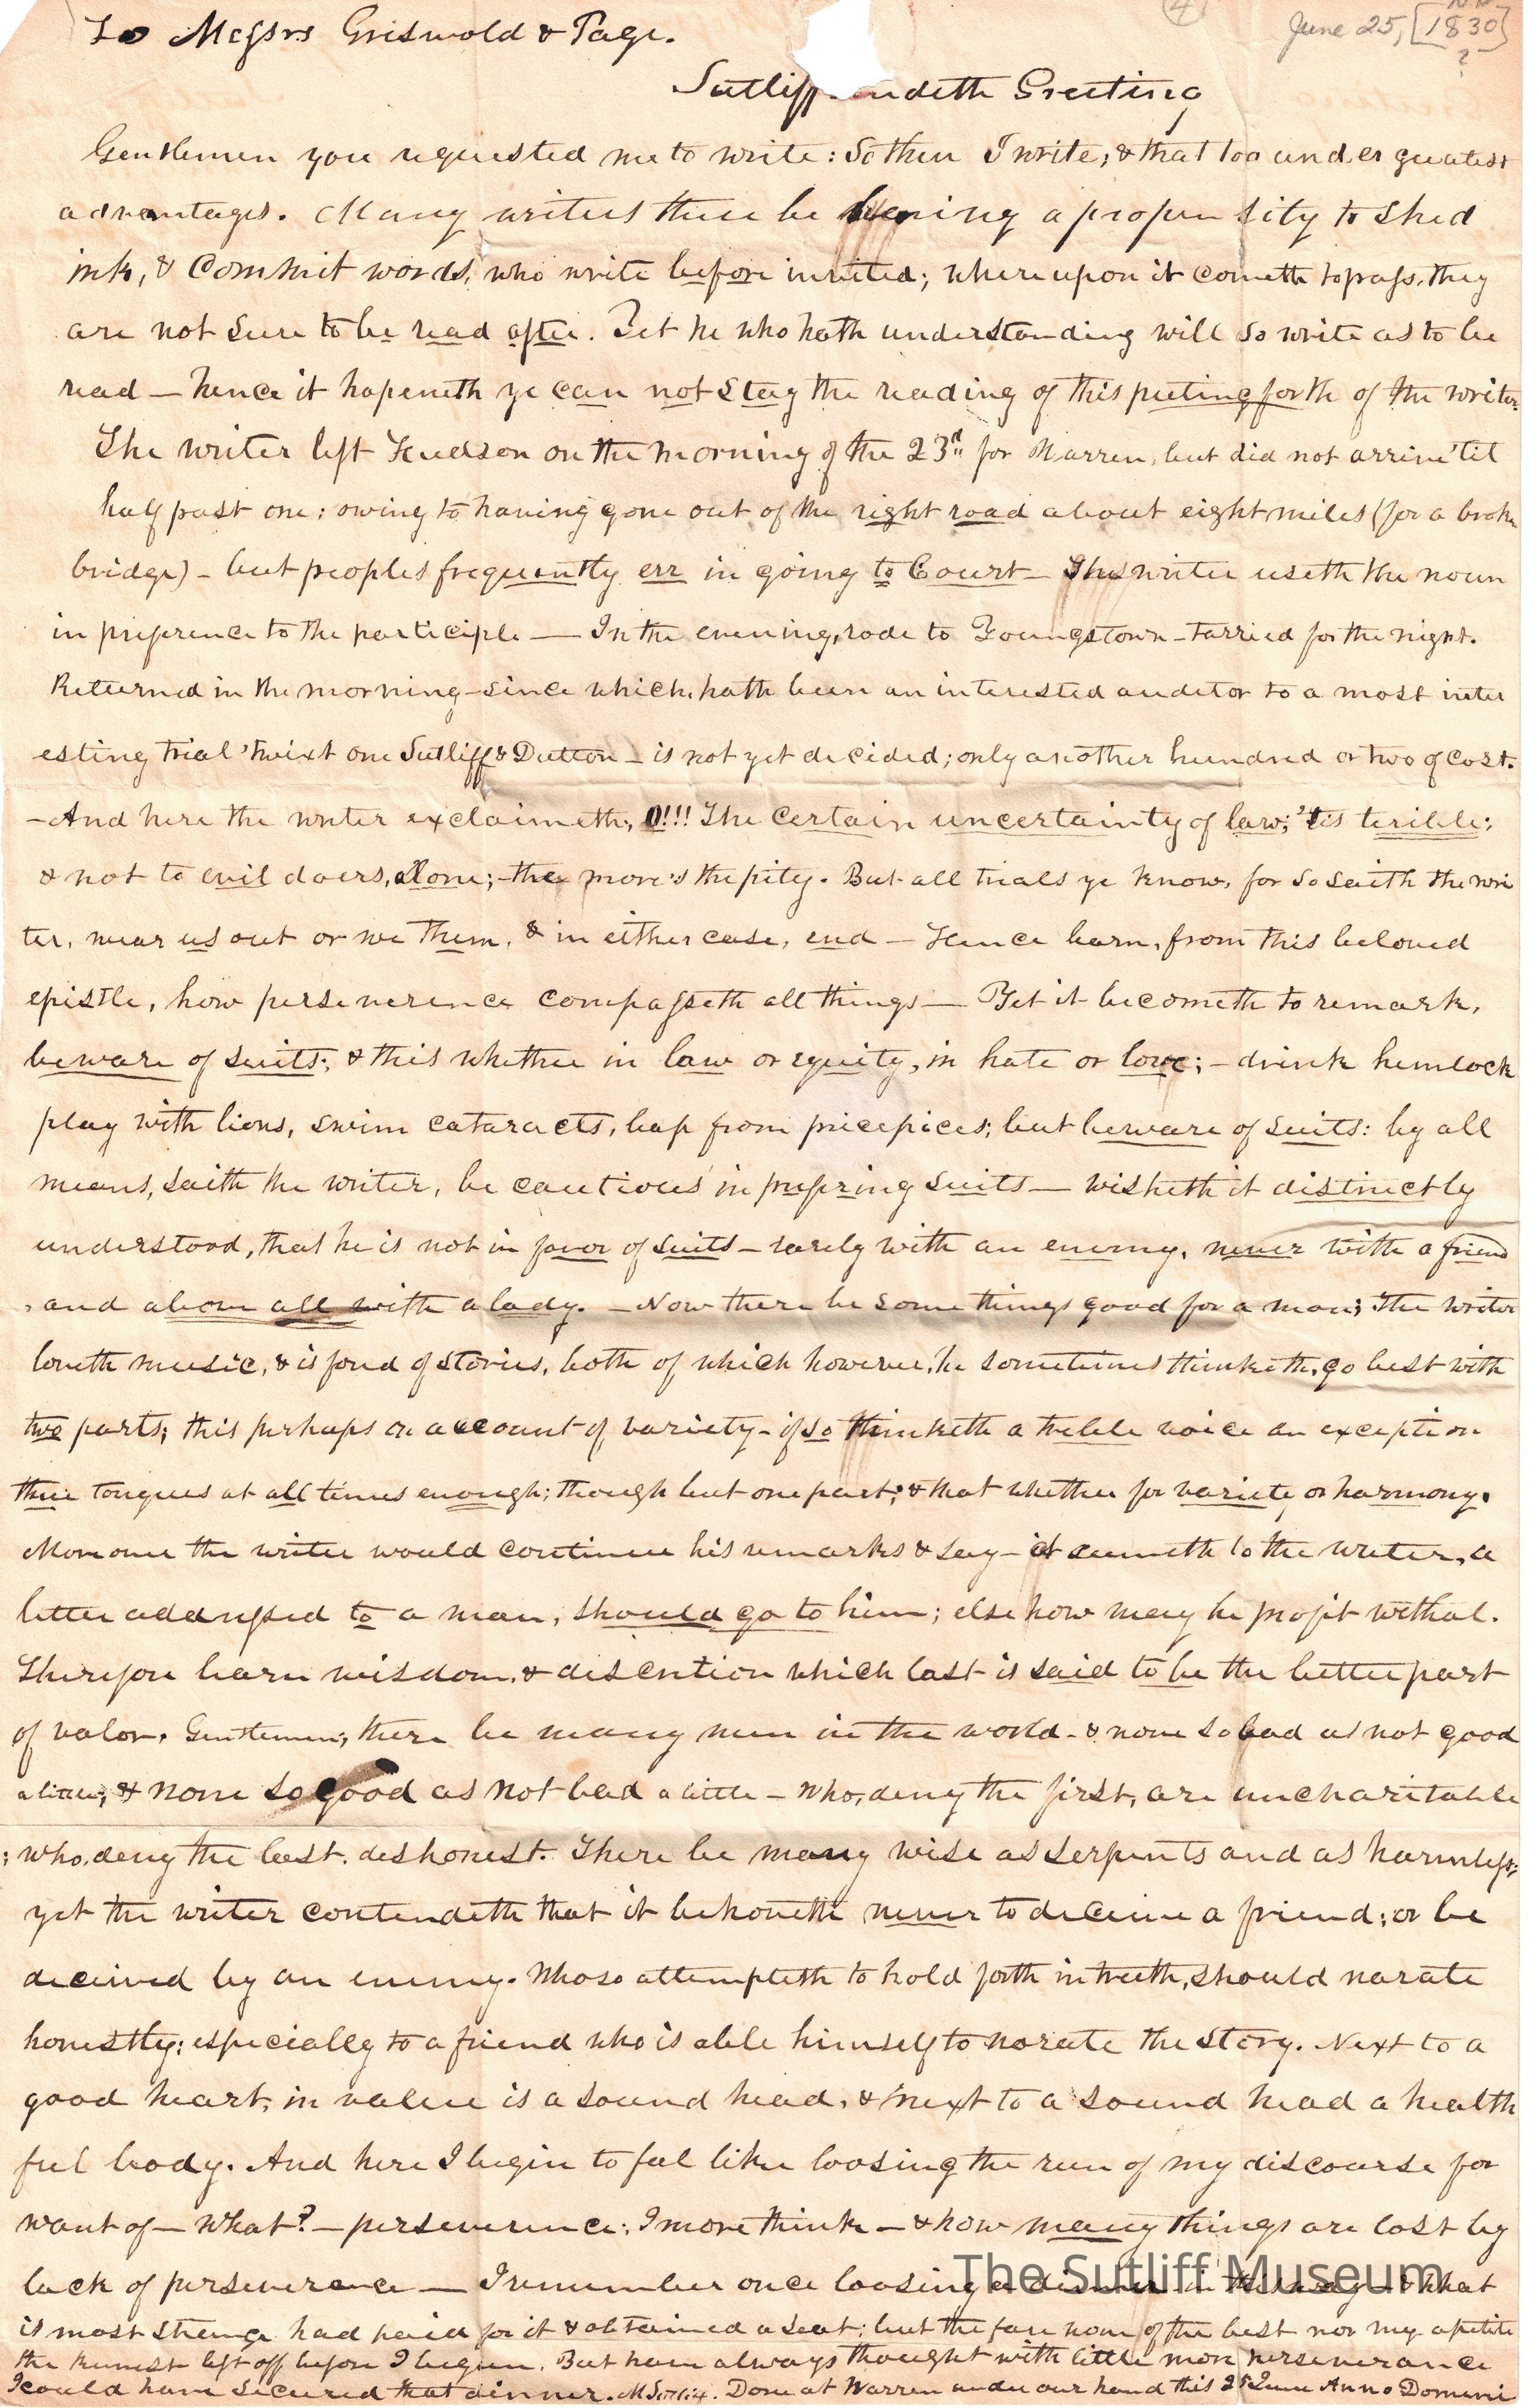 ④
June 25, [1830]
?
To Messrs Griswold & Page.
Sutliff endeth Greeting
Gentlemen you requested me to write: So then I write; & that too under greatest
advantages. Many writers there be having a propensity to shed
ink, & commit words, who write before invited; whereupon it cometh to pass, they
are not sure to be read after. Yet he who hath understanding will so write as to be
read — hence it hapeneth ye can not stay the reading of this puting forth of the writer.
The writer left Hudson on the morning of the 23d for Warren, but did not arrive 'til
half past one; owing to having gone out of the right road about eight miles (for a broke
bridge) - but peoples frequently err in going to Court — The writer useth the noun
in preference to the participle — In the evening, rode to Youngstown - tarried for the night.
Returned in the morning - since which, hath been an interested auditor to a most inter
esting trial 'twixt one Sutliff & Dutton — is not yet decided; only another hundred or two of cost.
- And here the writer exclaimeth, O!!! The certain uncertainty of law; 'tis terible;
& not to evil doers, alone; - the more's the pity. But all trials ye know, for so saith the wri
ter, wear us out or we them, & in either case, end — Hence learn, from this beloved
epistle, how perseverence compasseth all things — Yet it becometh to remark,
beware of suits; & this whether in law or equity, in hate or love; - drink hemlock
play with lions, swim cataracts, leap from pricipices; but beware of suits: by all
means, saith the writer, be cautious in prefering suits — wisheth it distinctly
understood, that he is not in favor of suits - rarely with an enemy, never with a friend
, and above all with a lady. — Now there be some things good for a man; The writer
loveth music, & is fond of stories, both of which however, he sometimes thinketh, go best with
two parts; this perhaps on account of variety - if so thinketh a treble voice an exception
three tongues at all times enough; though but one part; & that whether for variety or harmony.
Moreover the writer would continue his remarks & say - it seemeth to the writer, a
letter addressed to a man, should go to him; else how may he profit withal.
Therefore learn wisdom, & discention which last is said to be the better part
of valor. Gentlemen; there be many men in the world - & none so bad as not good
a little; & none so good as not bad a little — Who, deny the first, are uncharitable
; who, deny the last, dishonest. There be many wise as serpents and as harmless;
yet the writer contendeth that it behoveth never to deceive a friend; or be
deceived by an enemy. Whoso attempteth to hold forth in truth, should narate
honestly; especially to a friend who is able himself to norate the story. Next to a
good heart, in value is a sound head, & next to a sound head a health
ful body. And here I begin to feel like loosing the run of my discourse for
want of — what? — perseverence; I more think — & how many things are lost by
lack of perseverance — I remember once loosing a dinner in this way - & what
is most strange had paid for it & obtained a seat; but the fare none of the best nor my apetite
the keenest left off before I begun. But have always thought with little more perseverance
I could have secured that dinner. M Sutliff. Done at Warren under our hand this 25 June Anno Domini
The Sutliff Museum